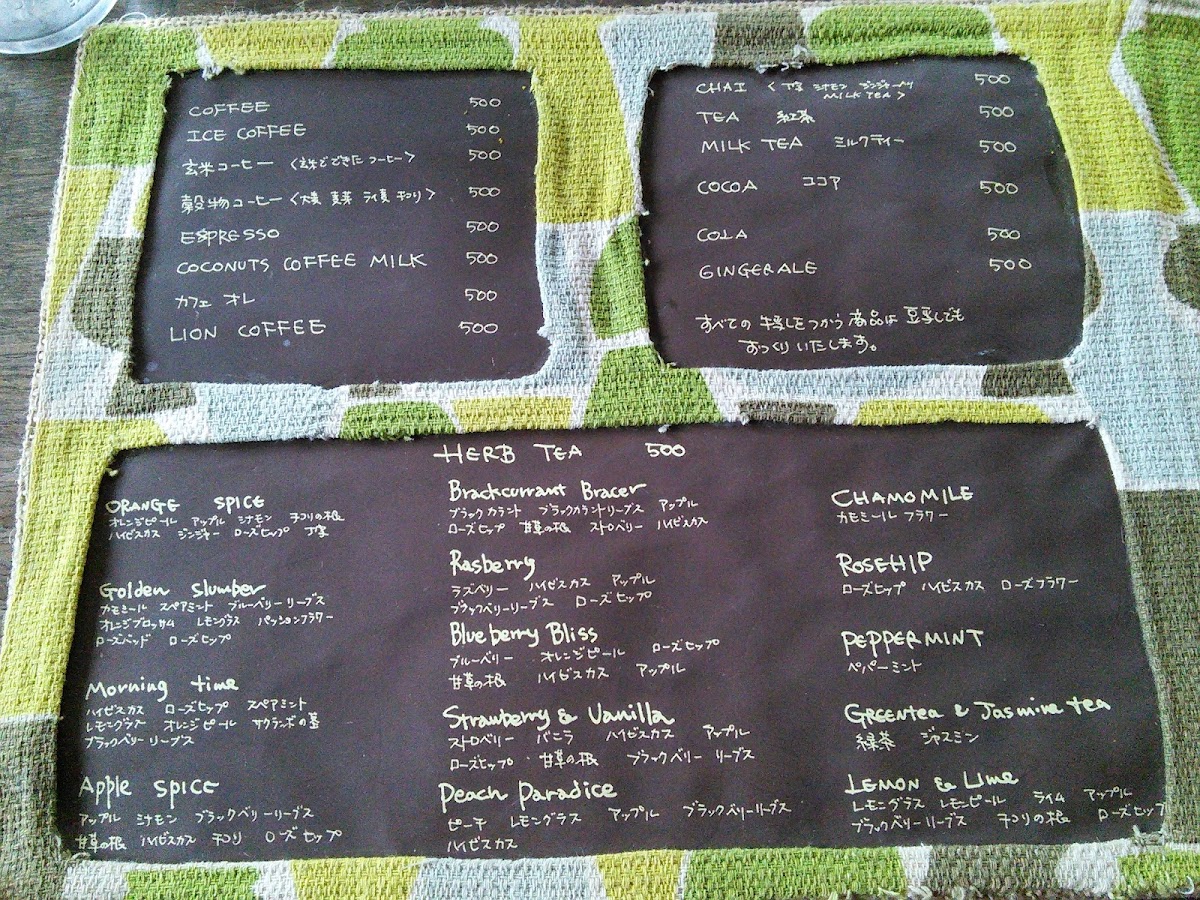 COFFEE 500
ICE COFFEE 500
玄米コーヒー <玄米でできたコーヒー> 500
穀物コーヒー <大麦 麦芽 ライ麦 チコリ> 500
ESPRESSO 500
COCONUTS COFFEE MILK 500
カフェ オレ 500
LION COFFEE 500
CHAI < 丁字 シナモン ジンジャー入り 500
MILK TEA >
TEA 紅茶 500
MILK TEA ミルクティー 500
COCOA ココア 500
COLA 500
GINGERALE 500
すべての 牛乳をつかう 商品は 豆乳でも
おつくり いたします。
HERB TEA 500
ORANGE SPICE
オレンジピール アップル シナモン チコリの根
ハイビスカス ジンジャー ローズヒップ 丁字
Golden slumber
カモミール スペアミント ブルーベリーリーブス
オレンジブロッサム レモングラス パッションフラワー
ローズバッド ローズヒップ
Morning time
ハイビスカス ローズヒップ スペアミント
レモングラス オレンジピール サクランボの茎
ブラックベリーリーブス
Apple SPICE
アップル シナモン ブラックベリーリーブス
甘草の根 ハイビスカス チコリ ローズヒップ
Brackcurrant Bracer
ブラックカラント ブラックカラントリーブス アップル
ローズヒップ 甘草の根 ストロベリー ハイビスカス
Rasberry
ラズベリー ハイビスカス アップル
ブラックベリーリーブス ローズヒップ
Blueberry Bliss
ブルーベリー オレンジピール ローズヒップ
甘草の根 ハイビスカス アップル
Strawberry & Vanilla
ストロベリー バニラ ハイビスカス アップル
ローズヒップ 甘草の根 ブラックベリーリーブス
Peach Paradice
ピーチ レモングラス アップル ブラックベリーリーブス
ハイビスカス
CHAMOMILE
カモミール フラワー
ROSEHIP
ローズヒップ ハイビスカス ローズフラワー
PEPPERMINT
ペパーミント
GREENtea & Jasmine tea
緑茶 ジャスミン
LEMON & Lime
レモングラス レモンピール ライム アップル
ブラックベリーリーブス チコリの根 ローズヒップ